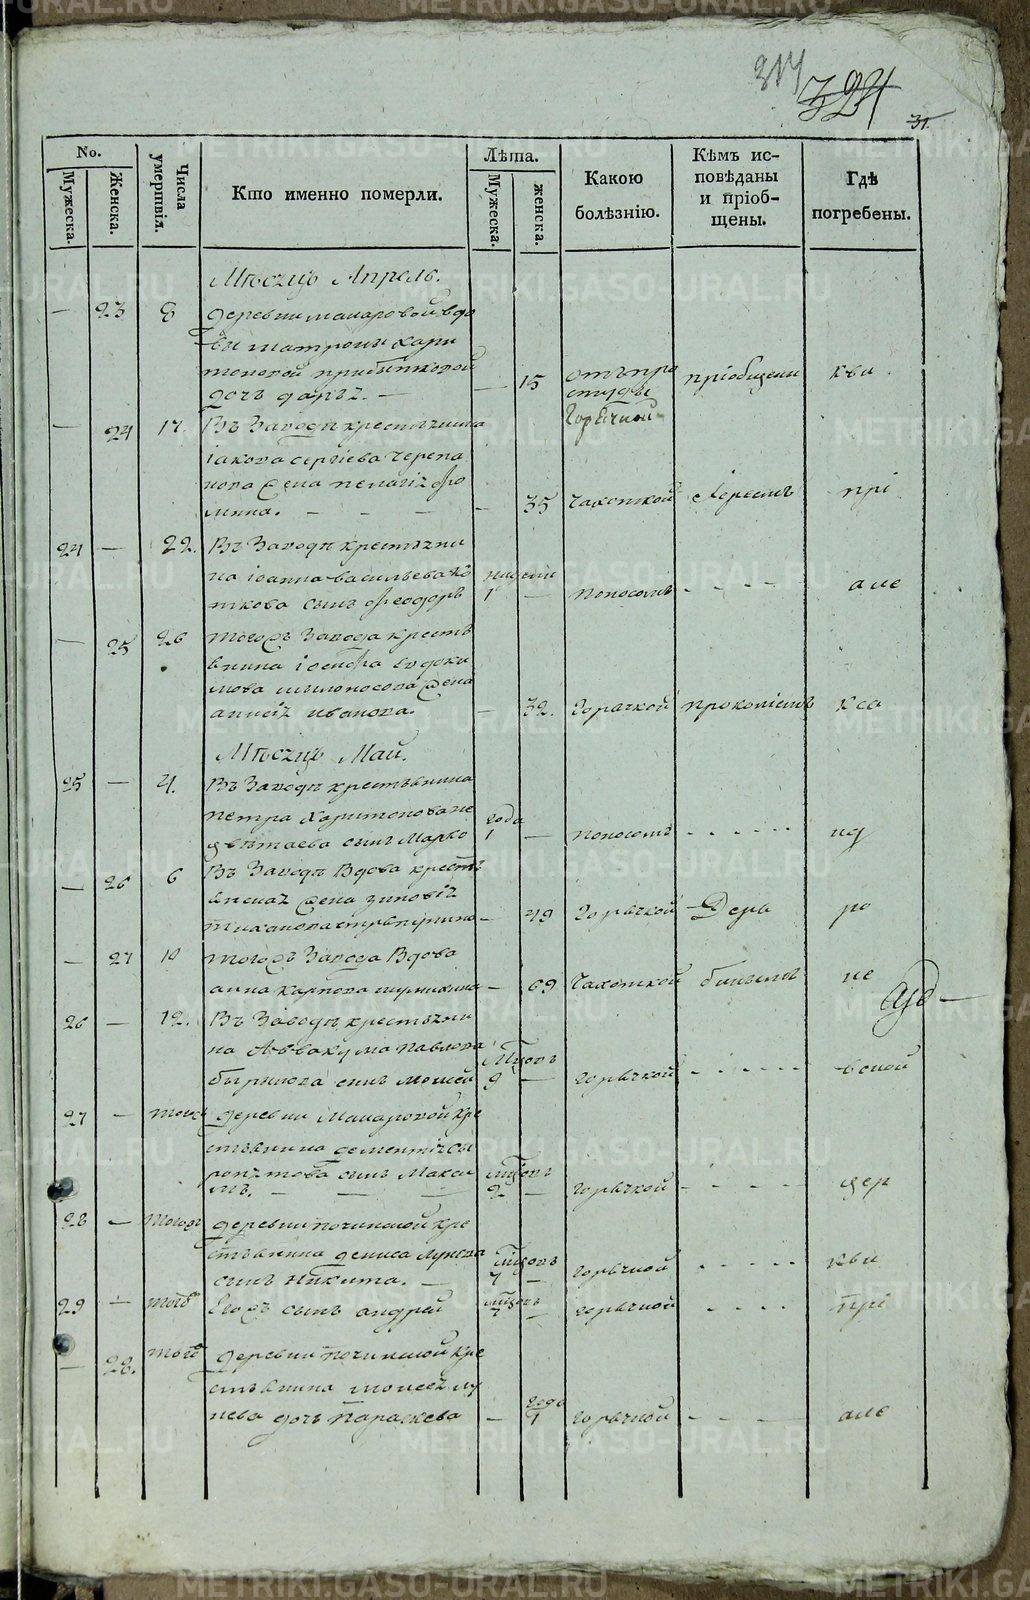 314
324
31.
No.
Мужеска.
Женска.
Числа умертвія.
Кто именно померли.
Лѣта.
Мужеска.
женска.
Какою болѣзнію.
Кѣмъ исповѣданы и пріобщены.
Гдѣ погребены.
Мѣсяцъ Апрель.
— 23 8 деревни макаровой вдо
вы матроны хари
тоновой
дочь дарья. — — 15 пріобщени кви.
— 24 17. Въ Заводѣ крестьянина Горячкой
іакова сергіева черепа
нова жена пелагія фо
мина. — — — — 35 Чахоткой Іереемъ прі
24 — 22. Въ Заводѣ крестьяни
на іоанна васильева
сынъ феодоръ недели 1 — поносомъ - - - - але
— 25 26 тогожъ Завода кресть
янина іосифа евдоки
мова жена
анисія иванова. — 32. Горячкой прокопіемъ кса
Мѣсяцъ Май.
25 — 4. Въ Заводѣ крестьянина
петра Харитонова не
цвѣтаева сынъ Марко года 1 — поносомъ - - - - - - нд
— 26 6 Въ Заводѣ Вдова кресть
янская жена зиновія
— 49 Горячкой Дерь ро
— 27 10 тогожъ Завода Вдова
анна карпова — 69 Чахоткой бинымъ не
26 — 12. Въ Заводѣ крестьяни
на Аввакума павлова
сынъ моисей Мцовъ 9 — горячкой - - - - - - вской
27 — тогожъ деревни Макаровой кре
стьянина дементія
сынъ Макси
мъ. — — — мцовъ 9 — горячкой - - - - - цер
28 — тогожъ деревни починской кре
стьянина дениса лунева
сынъ никита. — мцовъ 7 — горячкой - - - - - кви
29 — тогожъ Егожъ сынъ андрей мцовъ 7 — горячкой - - - - прі
— 28. тогожъ деревни починской кре
стьянина моисея лу
нева дочь Параскева — года 1 горячкой - - - - але
METRIKI.GASO-URAL.RU